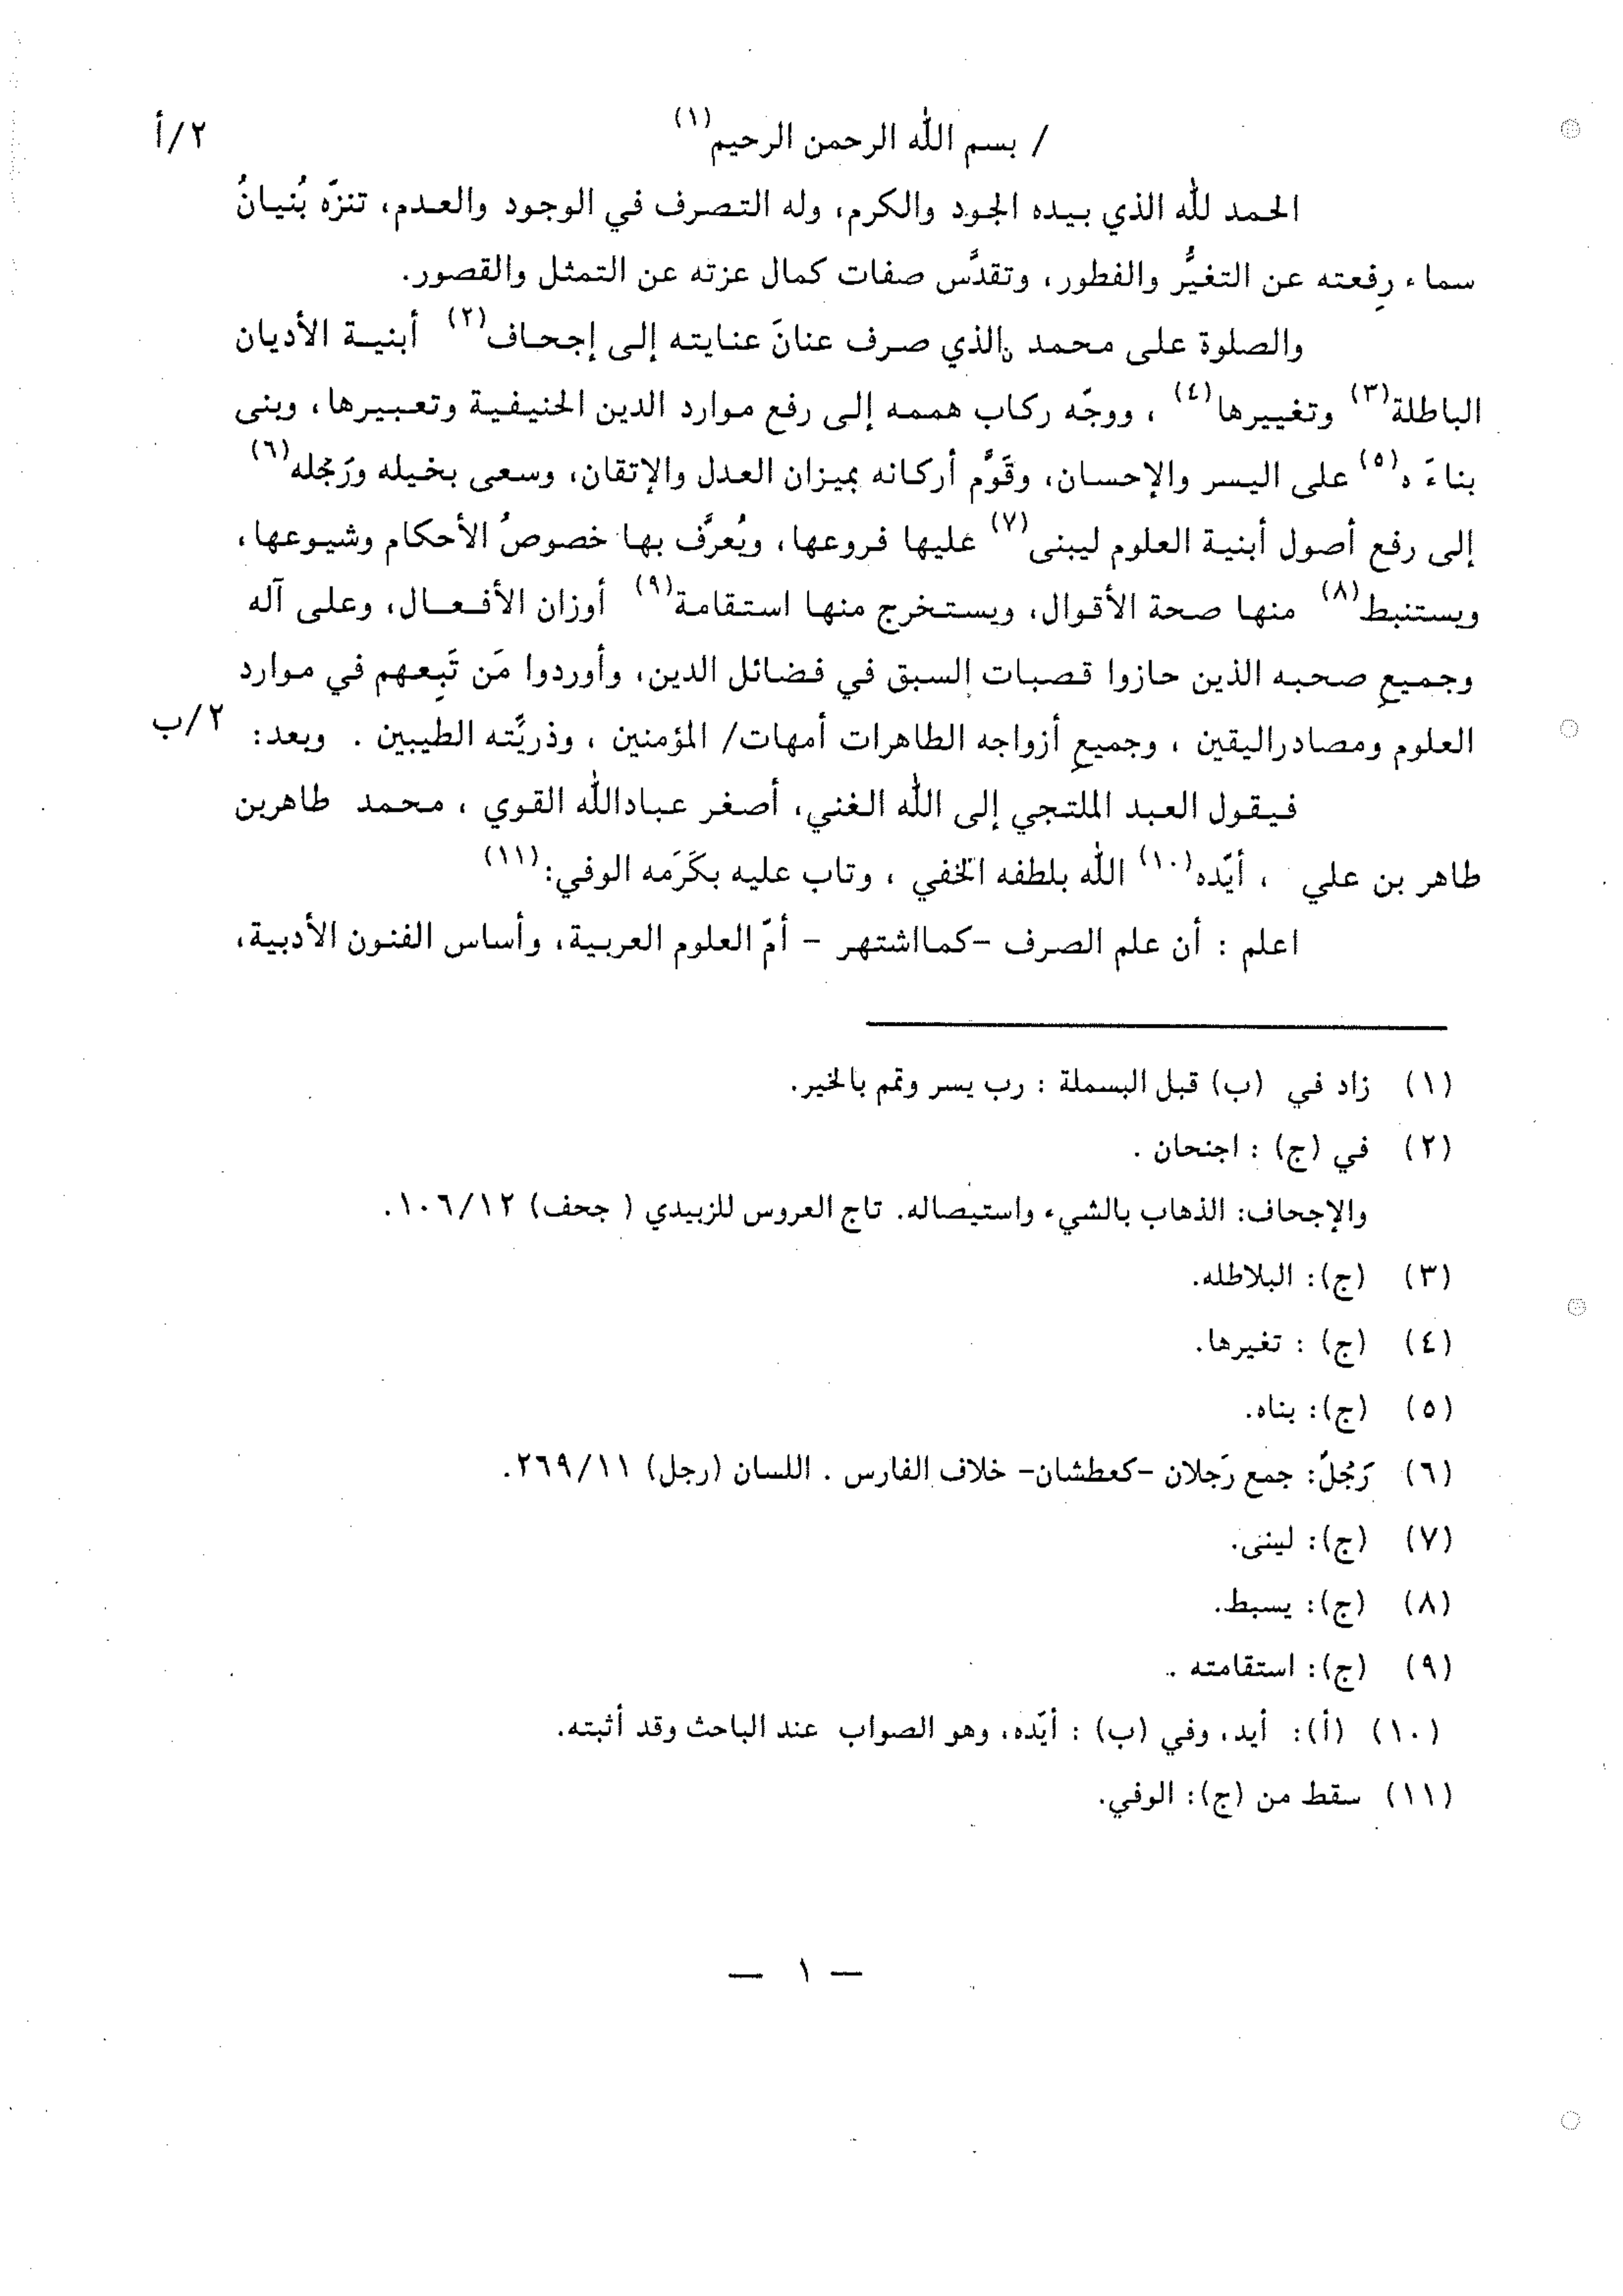 / بسم الله الرحمن الرحيم(١) ٢/أ
الحمد لله الذي بيده الجود والكرم، وله التصرف في الوجود والعدم، تنزّه بُنيانُ
سماء رِفعته عن التغيُّر والفطور، وتقدَّس صفات كمال عزته عن التمثل والقصور.
والصلوة على محمد الذي صرف عنانَ عنايته إلى إجحاف(٢) أبنية الأديان
الباطلة(٣) وتغييرها(٤) ، ووجّه ركاب هممه إلى رفع موارد الدين الحنيفية وتعبيرها، وبنى
بناءَه(٥) على اليسر والإحسان، وقَوَّم أركانه بميزان العدل والإتقان، وسعى بخيله ورَجْله(٦)
إلى رفع أصول أبنية العلوم ليبنى(٧) عليها فروعها، ويُعرَّف بها خصوصُ الأحكام وشيوعها،
ويستنبط(٨) منها صحة الأقوال، ويستخرج منها استقامة(٩) أوزان الأفعال، وعلى آله
وجميعِ صحبه الذين حازوا قصبات السبق في فضائل الدين، وأوردوا مَن تَبِعهم في موارد
العلوم ومصادراليقين ، وجميعِ أزواجه الطاهرات أمهات/ المؤمنين ، وذريَّته الطيبين . وبعد: ٢/ب
فيقول العبد الملتجي إلى الله الغني، أصغر عبادالله القوي ، محمد طاهربن
طاهر بن علي ، أيّده(١٠) الله بلطفه الخفي ، وتاب عليه بكَرَمه الوفي:(١١)
اعلم : أن علم الصرف -كمااشتهر - أمّ العلوم العربية، وأساس الفنون الأدبية،
(١) زاد في (ب) قبل البسملة : رب يسر وتمم بالخير.
(٢) في (ج) : اجنحان .
والإجحاف: الذهاب بالشيء واستيصاله. تاج العروس للزبيدي ( جحف) ١٠٦/١٢.
(٣) (ج): البلاطله.
(٤) (ج) : تغيرها.
(٥) (ج): بناه.
(٦) رَجْلٌ: جمع رَجلان -كعطشان- خلاف الفارس . اللسان (رجل) ٢٦٩/١١.
(٧) (ج): لينى.
(٨) (ج): يسبط.
(٩) (ج): استقامته .
(١٠) (أ): أيد، وفي (ب) : أيّده، وهو الصواب عند الباحث وقد أثبته.
(١١) سقط من (ج): الوفي.
— ١ —